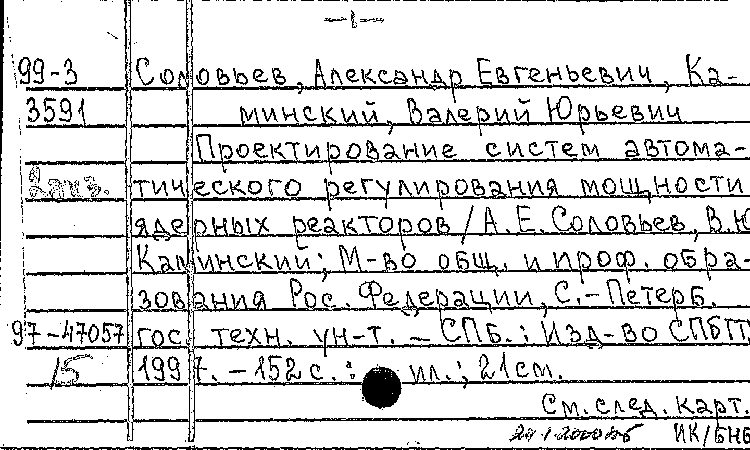 — 1 —
99-3 Соловьев, Александр Евгеньевич, Ка-
3591 минский, Валерий Юрьевич
Проектирование систем автома-
2 экз. тического регулирования мощности
ядерных реакторов / А.Е. Соловьев, В.Ю
Каминский; М-во общ. и проф. обра-
зования Рос. Федерации, С.-Петерб.
97-47057 гос. техн. ун-т. – СПб.: Изд-во СПбГТ
15 1997. – 152 с.: ил.; 21 см.
См. след. карт.
ИК/БНБ